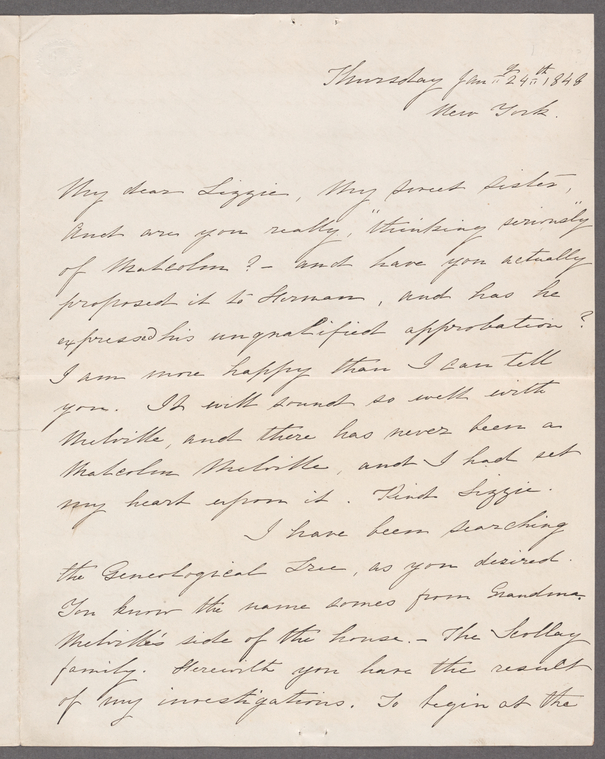 Thursday Jany 24th 1848
New York.
My dear Lizzie, My sweet sister,
And are you really, "thinking seriously"
of Malcolm? — and have you actually
proposed it to Herman, and has he
expressed his unqualified approbation?
I am more happy than I can tell
you. It will sound so well with
Melville, and there has never been a
Malcolm Melville, and I had set
my heart upon it. Kind Lizzie.
I have been searching
the Geneological Tree, as you desired.
You know the name comes from Grandma
Melville's side of the house. — The Scollay
family. Herewith you have the result
of my investigations. To begin at the